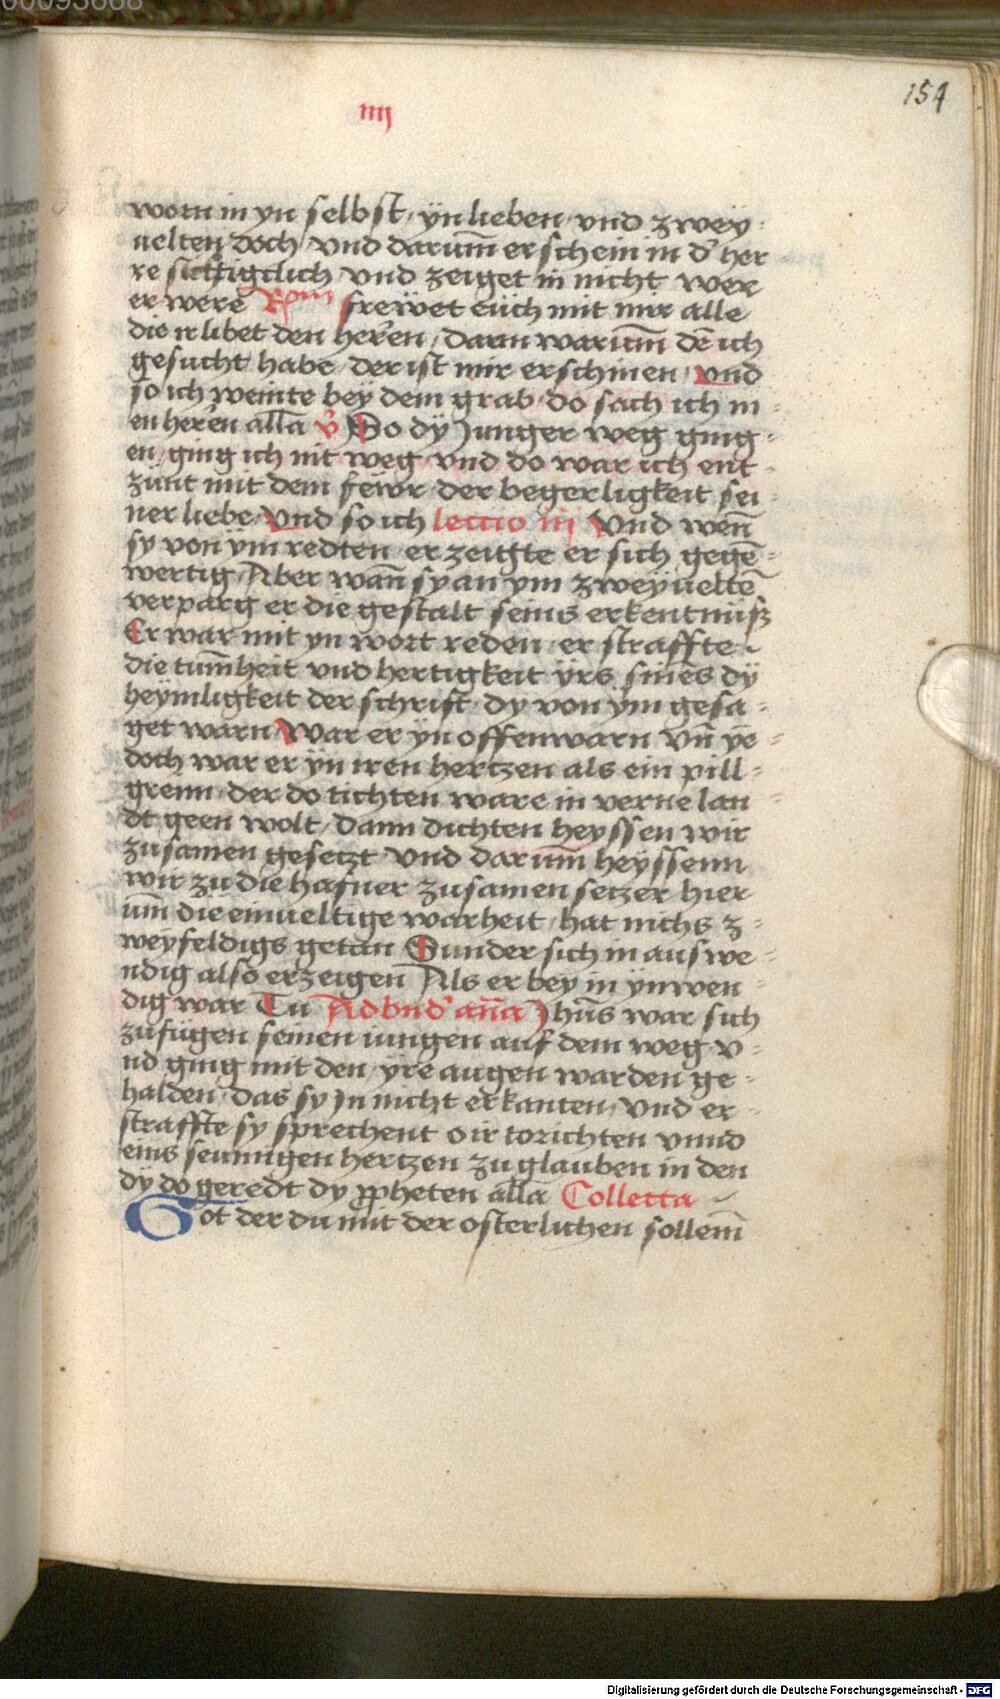 00093668
154
iiij
worn in yn selbst · ÿn lieben · vnd zweÿ-
uelten doch / vnd darum̄ erschein in d' her-
re sichtigclich · vnd zeiget in nicht wer
er were Rm frewet euch mit mir alle
die ir libet den herren / dann warum̄ dē ich
gesucht habe / der ist mir erschinen / vnd
so ich weinte beÿ dem grab · do sach ich m-
en herrn alla v̄ So dÿ Junger weg ging-
en / ging ich nit weg · vnd do war ich ent-
zünt mit dem fewr · der begerligkeit sei-
ner liebe / vnd so ich lectio iij Vnd wen̄
sy von ÿm redten · er zeigte er sich gegē-
wertig / Aber wan̄ sy an ym zweyueltē
verparg er die gestalt seins erkentnüß
Er war mit yn wort reden · er straffte
die tum̄heit vnd hertigkeit ÿrs sines dÿ
heymligkeit der schrift · dy von ym gesa-
get warn / War er yn offenwarn vn̄ ÿe-
doch war er ÿn iren hertzen als ein pill-
grenn · der do tichten ware in verne lan-
dt geen wolt / dann dichten heyssen wir
zusamen gesetzt · vnd darum̄ heÿssenn
wir zu die hafner zusamen setzer hier-
um̄ die einueltige warheit / hat nichs z-
weyfeldigs getan Sunder sich in auswe-
ndig also erzeigen / Als er bey in ÿnwen-
dig war Tu Ad bnd' an̄a Jhūs war sich
zufügen seinen iungen auf dem weg v-
nd ging mit den / yre augen warden ge-
halden · das sy Jn nicht erkanten / vnd er-
straffte sy sprechent o ir torichten vnnd
eins seumigen hertzen zu glauben in den
dy do geredt dy ꝓpheten alla Collecta
Got der du mit der osterlichen sollem̄
Digitalisierung gefördert durch die Deutsche Forschungsgemeinschaft - DFG